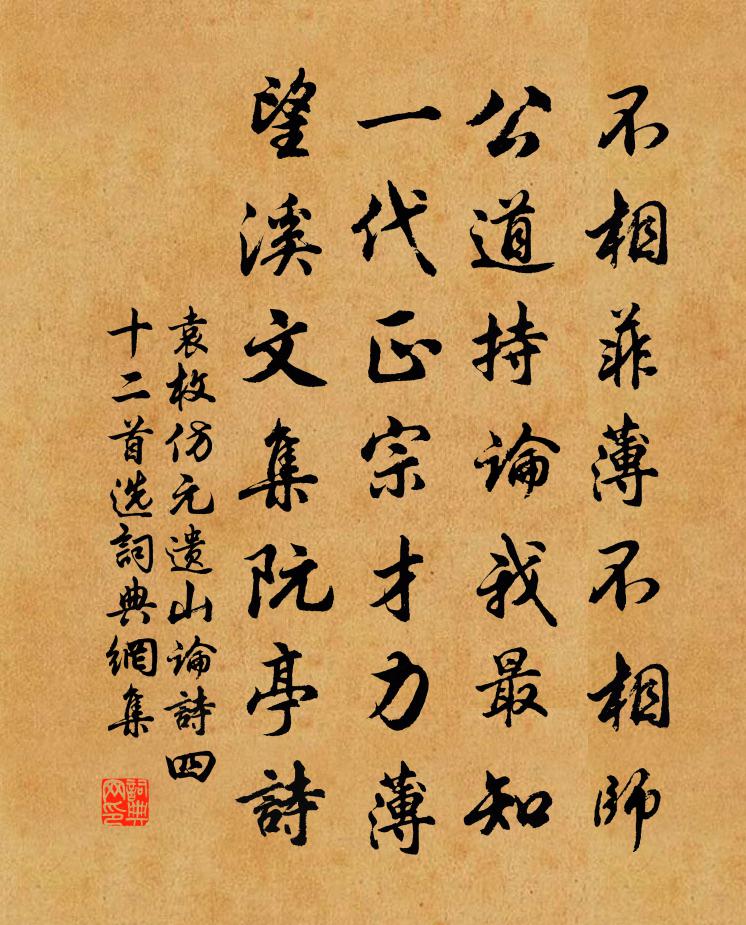 不相菲薄不相師
公道持論我最知
一代正宗才力薄
望溪文集阮亭詩
袁枚仿元遗山論詩四
十二首选詞典網集
詞典网印